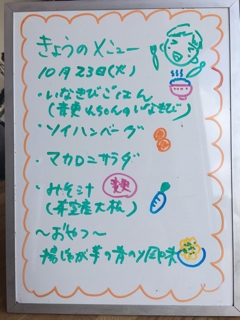 きょうのメニュー
10月23日(火)
・いなきびごはん
(青更れちゃんのいなきび)
・ソイハンバーグ
・マカロニサラダ
・みそ汁
(芽室産大根)
～おやつ～
揚じゃが芋の青のり風味